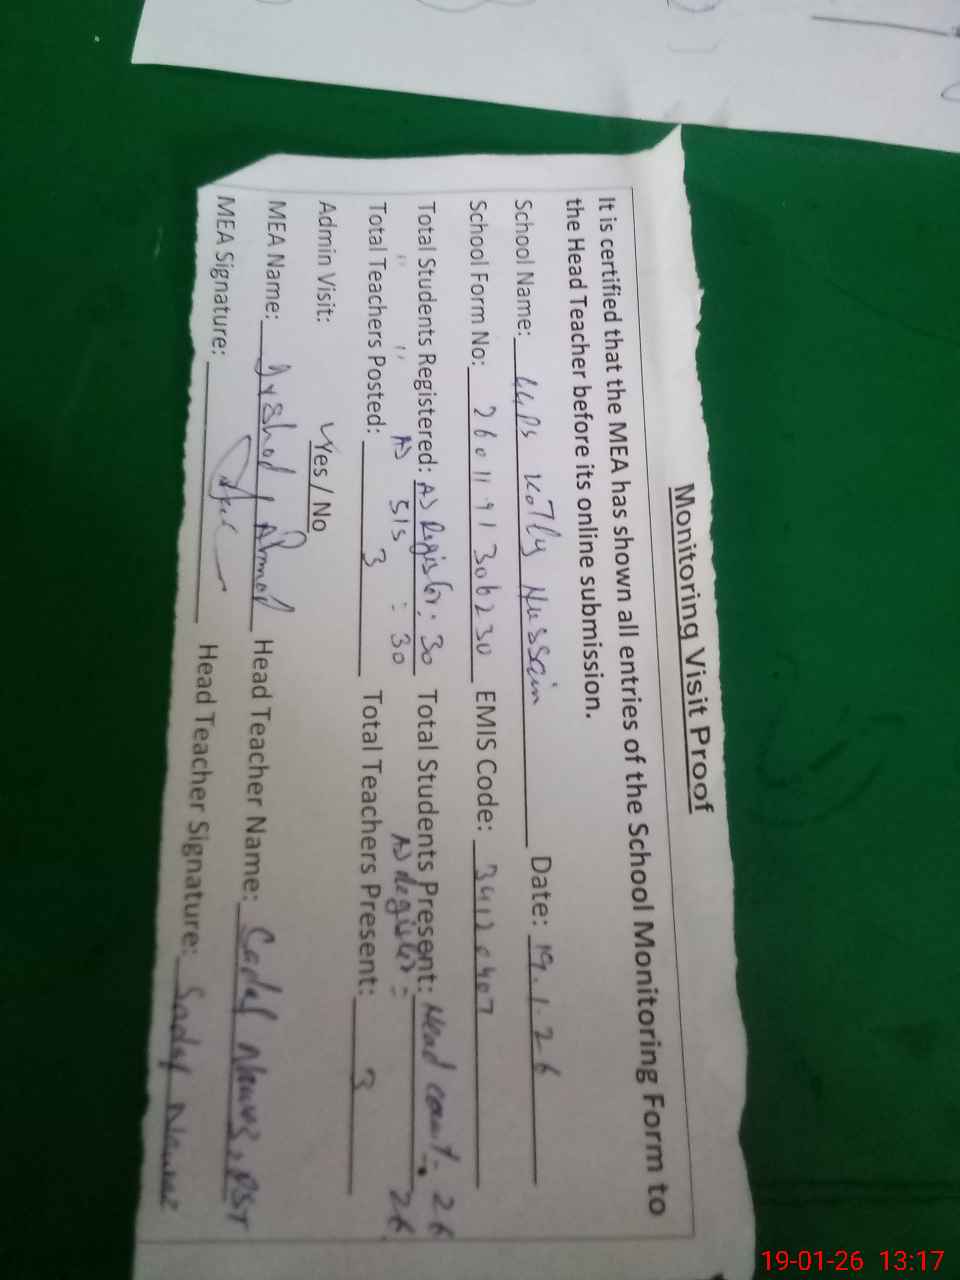 Monitoring Visit Proof
It is certified that the MEA has shown all entries of the School Monitoring Form to
the Head Teacher before its online submission.
School Name: GGPS Kotly Hussain Date: 19.1.26
School Form No: 2601191306230 EMIS Code: 34120407
Total Students Registered: AS Register: 30 Total Students Present: Head count - 26
" " AS SIS : 30 AS Register = 26
Total Teachers Posted: 3 Total Teachers Present: 3
Admin Visit: Yes / No
MEA Name: Irshad Ahmad Head Teacher Name: Sadaf Nawaz, PST
MEA Signature: Head Teacher Signature: Sadaf Nawaz
19-01-26 13:17